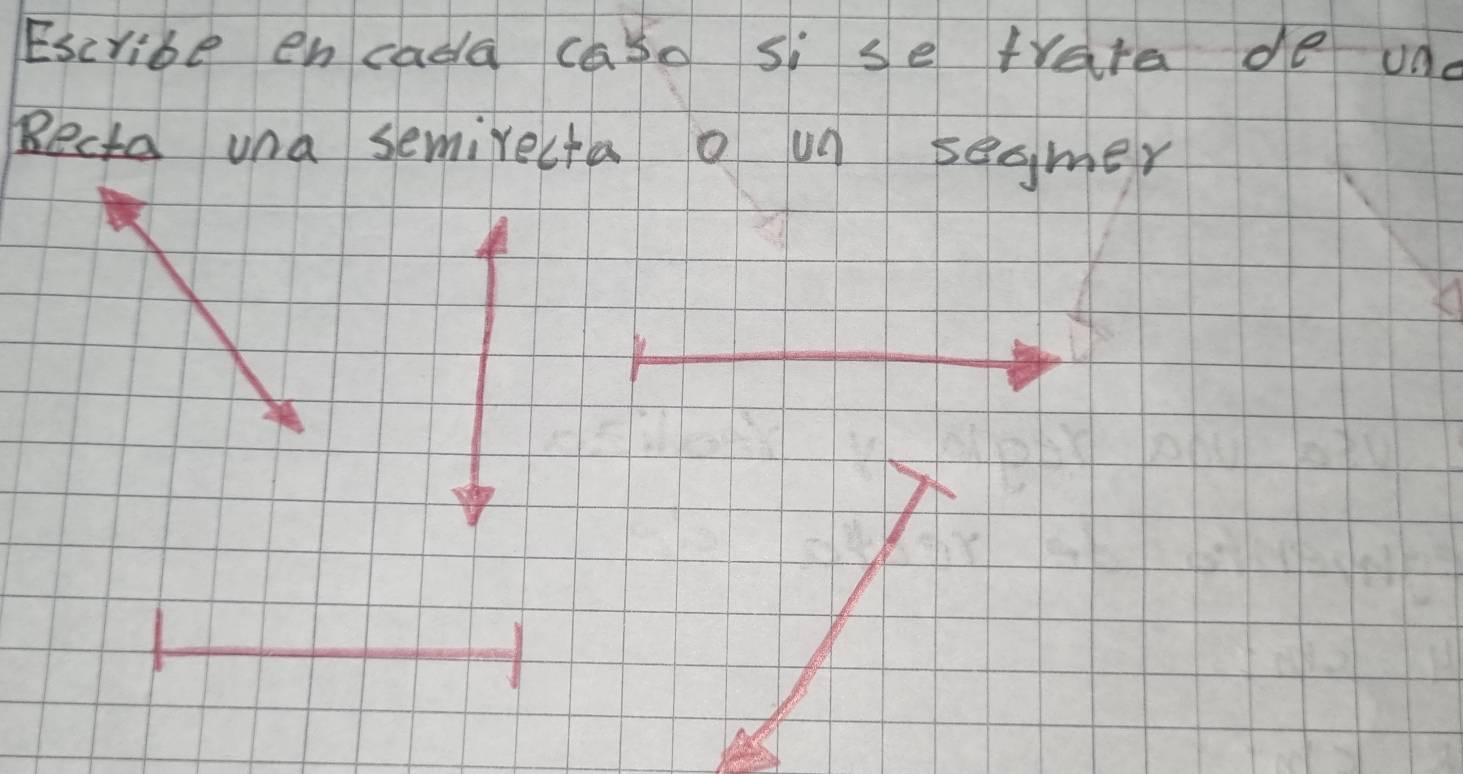 Escribe en cada caso si se trata de una
Recta una semirecta o un segmer